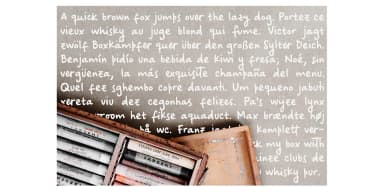 A quick brown fox jumps over the lazy dog. Portez ce
vieux whisky au juge blond qui fume. Victor jagt
zwölf Boxkämpfer quer über den großen Sylter Deich.
Benjamín pidió una bebida de kiwi y fresa; Noé, sin
vergüenza, la más exquisite champaña del menu.
Quel fez sghembo copre davanti. Um pequeno jabuti
xereta viu dez cegonhas felizes. Pa's wijze lynx
room het fikse aquaduct. Max brændte høj
på wc. Franz komplett ver-
my box with
clubs de
whisky pur.